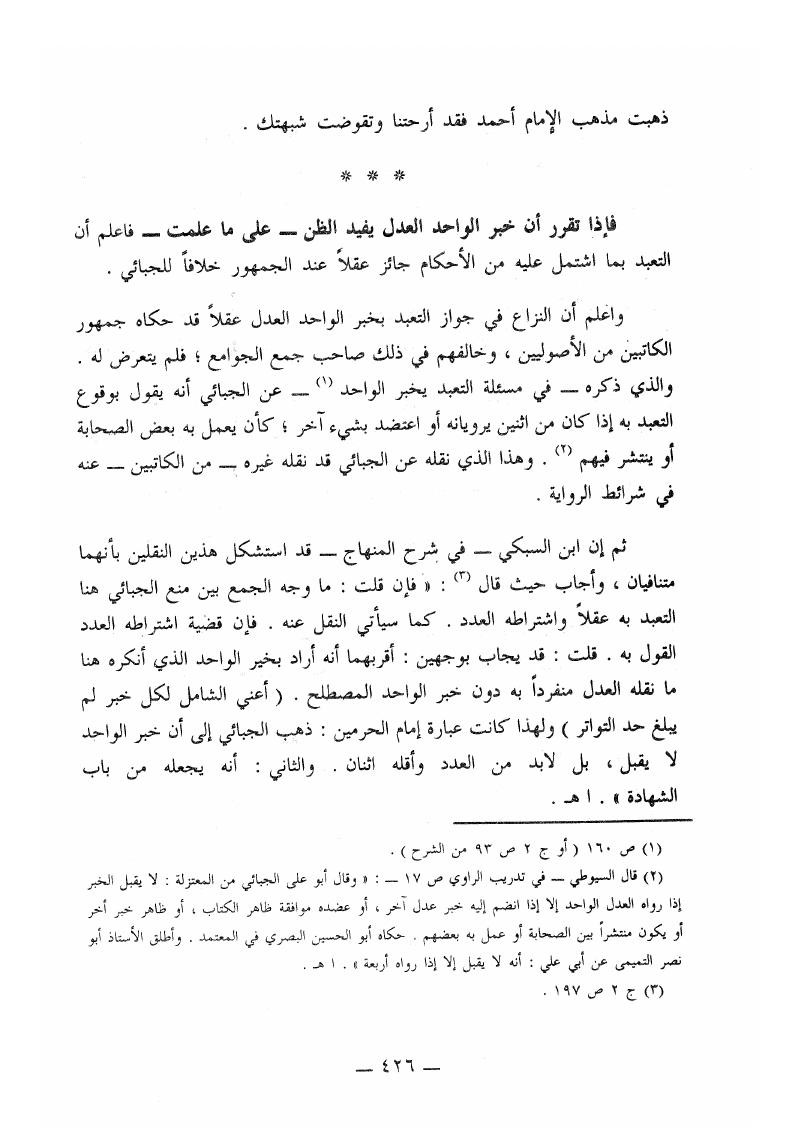 ذهبت مذهب الإمام أحمد فقد أرحتنا وتقوضت شبهتك .
* * *
فإذا تقرر أن خبر الواحد العدل يفيد الظن — على ما علمت — فاعلم أن
التعبد بما اشتمل عليه من الأحكام جائز عقلاً عند الجمهور خلافاً للجبائي .
واعلم أن النزاع في جواز التعبد بخبر الواحد العدل عقلاً قد حكاه جمهور
الكاتبين من الأصوليين ، وخالفهم في ذلك صاحب جمع الجوامع ؛ فلم يتعرض له .
والذي ذكره — في مسئلة التعبد يخبر الواحد (١) — عن الجبائي أنه يقول بوقوع
التعبد به إذا كان من اثنين يرويانه أو اعتضد بشيء آخر ؛ كأن يعمل به بعض الصحابة
أو ينتشر فيهم (٢) . وهذا الذي نقله عن الجبائي قد نقله غيره — من الكاتبين — عنه
في شرائط الرواية .
ثم إن ابن السبكي — في شرح المنهاج — قد استشكل هذين النقلين بأنهما
متنافيان ، وأجاب حيث قال (٣) : « فإن قلت : ما وجه الجمع بين منع الجبائي هنا
التعبد به عقلاً واشتراطه العدد . كما سيأتي النقل عنه . فإن قضية اشتراطه العدد
القول به . قلت : قد يجاب بوجهين : أقربهما أنه أراد بخير الواحد الذي أنكره هنا
ما نقله العدل منفرداً به دون خبر الواحد المصطلح . ( أعني الشامل لكل خبر لم
يبلغ حد التواتر ) ولهذا كانت عبارة إمام الحرمين : ذهب الجبائي إلى أن خبر الواحد
لا يقبل ، بل لابد من العدد وأقله اثنان . والثاني : أنه يجعله من باب
الشهادة » . ا هـ .
(١) ص ١٦٠ ( أو ج ٢ ص ٩٣ من الشرح ) .
(٢) قال السيوطي — في تدريب الراوي ص ١٧ — : « وقال أبو على الجبائي من المعتزلة : لا يقبل الخبر
إذا رواه العدل الواحد إلا إذا انضم إليه خبر عدل آخر ، أو عضده موافقة ظاهر الكتاب ، أو ظاهر خبر أخر
أو يكون منتشراً بين الصحابة أو عمل به بعضهم . حكاه أبو الحسين البصري في المعتمد . وأطلق الأستاذ أبو
نصر التميمى عن أبي علي : أنه لا يقبل إلا إذا رواه أربعة » . ا هـ .
(٣) ج ٢ ص ١٩٧ .
— ٤٢٦ —